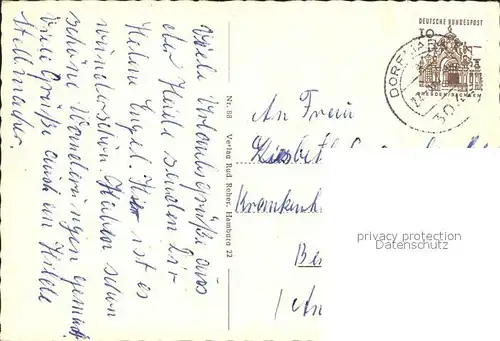 Viele Urlaubsgrüße aus
der Heide senden Dir
Helene Engel. Hier ist es
wunderschön. Haben schon
schöne Wanderungen gemacht
Viele Grüße auch an Hilde
Nr. 88 Verlag Rud. Reher, Hamburg 22
DEUTSCHE BUNDESPOST
10
DRESDEN/SACHSEN
DORFMARK
An Frau
Liesbeth
Krankenh
Be
An
privacy protection
Datenschutz